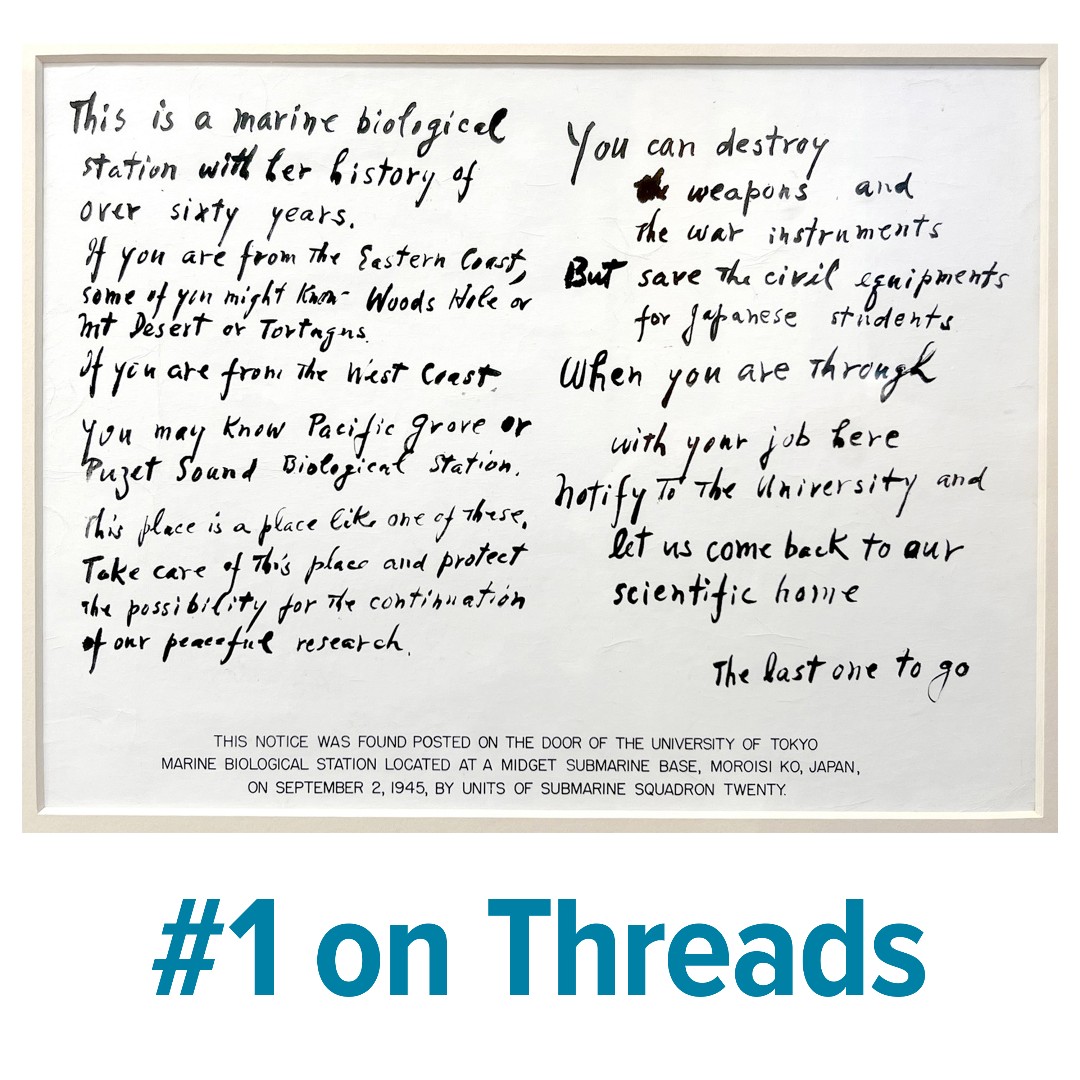 This is a marine biological
station with her history of
over sixty years.
If you are from the Eastern Coast,
some of you might know Woods Hole or
Mt Desert or Tortugas.
If you are from the West Coast
you may know Pacific Grove or
Puget Sound Biological Station.
This place is a place like one of these.
Take care of this place and protect
the possibility for the continuation
of our peaceful research.
You can destroy
the weapons and
the war instruments
But save the civil equipments
for Japanese students
When you are through
with your job here
Notify to the University and
let us come back to our
scientific home
The last one to go
THIS NOTICE WAS FOUND POSTED ON THE DOOR OF THE UNIVERSITY OF TOKYO
MARINE BIOLOGICAL STATION LOCATED AT A MIDGET SUBMARINE BASE, MOROISI KO, JAPAN,
ON SEPTEMBER 2, 1945, BY UNITS OF SUBMARINE SQUADRON TWENTY.
#1 on Threads